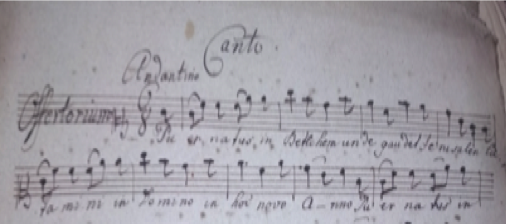 Canto.
Andantino
Offertorium
er natus in Bethlehem unde gaudet Jerusalem
in Domino in hoc novo Anno er natus in